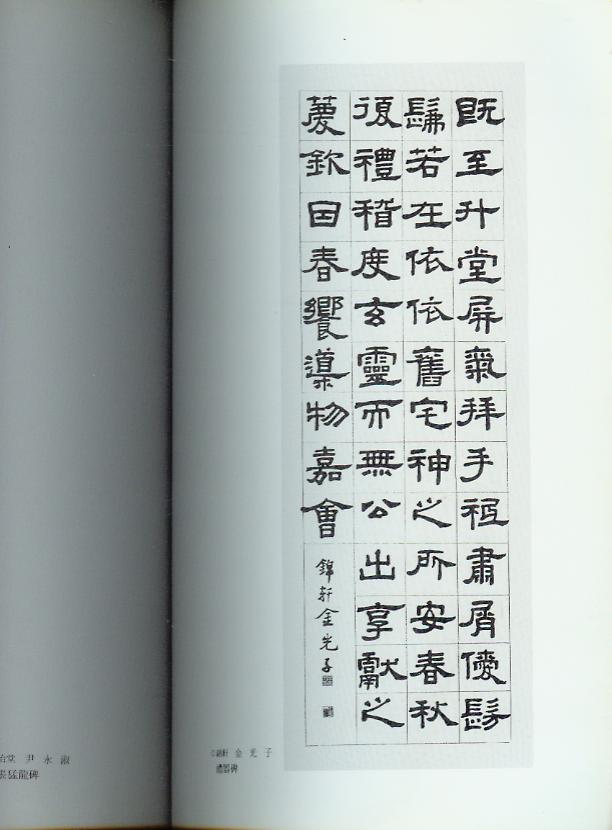 既至升堂屏氣拜手祗肅屑僾髣
髴若在依依舊宅神之所安春秋
復禮稽度玄靈而無公出享獻之
薦欽因春饗導物嘉會
錦軒金光子
錦軒 金光子
禮器碑
堂 尹永淑
猛龍碑